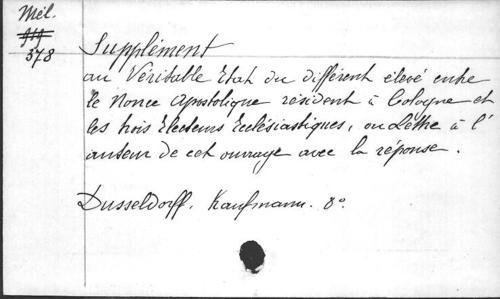 Mél.
919
378
Supplément
au Véritable Etat du différent élevé entre
le Nonce Apostolique résident à Cologne et
les trois Electeurs Ecclésiastiques, ou Lettre à l'
auteur de cet ouvrage avec la réponse.
Dusseldorff. Kaufmann. 8°.